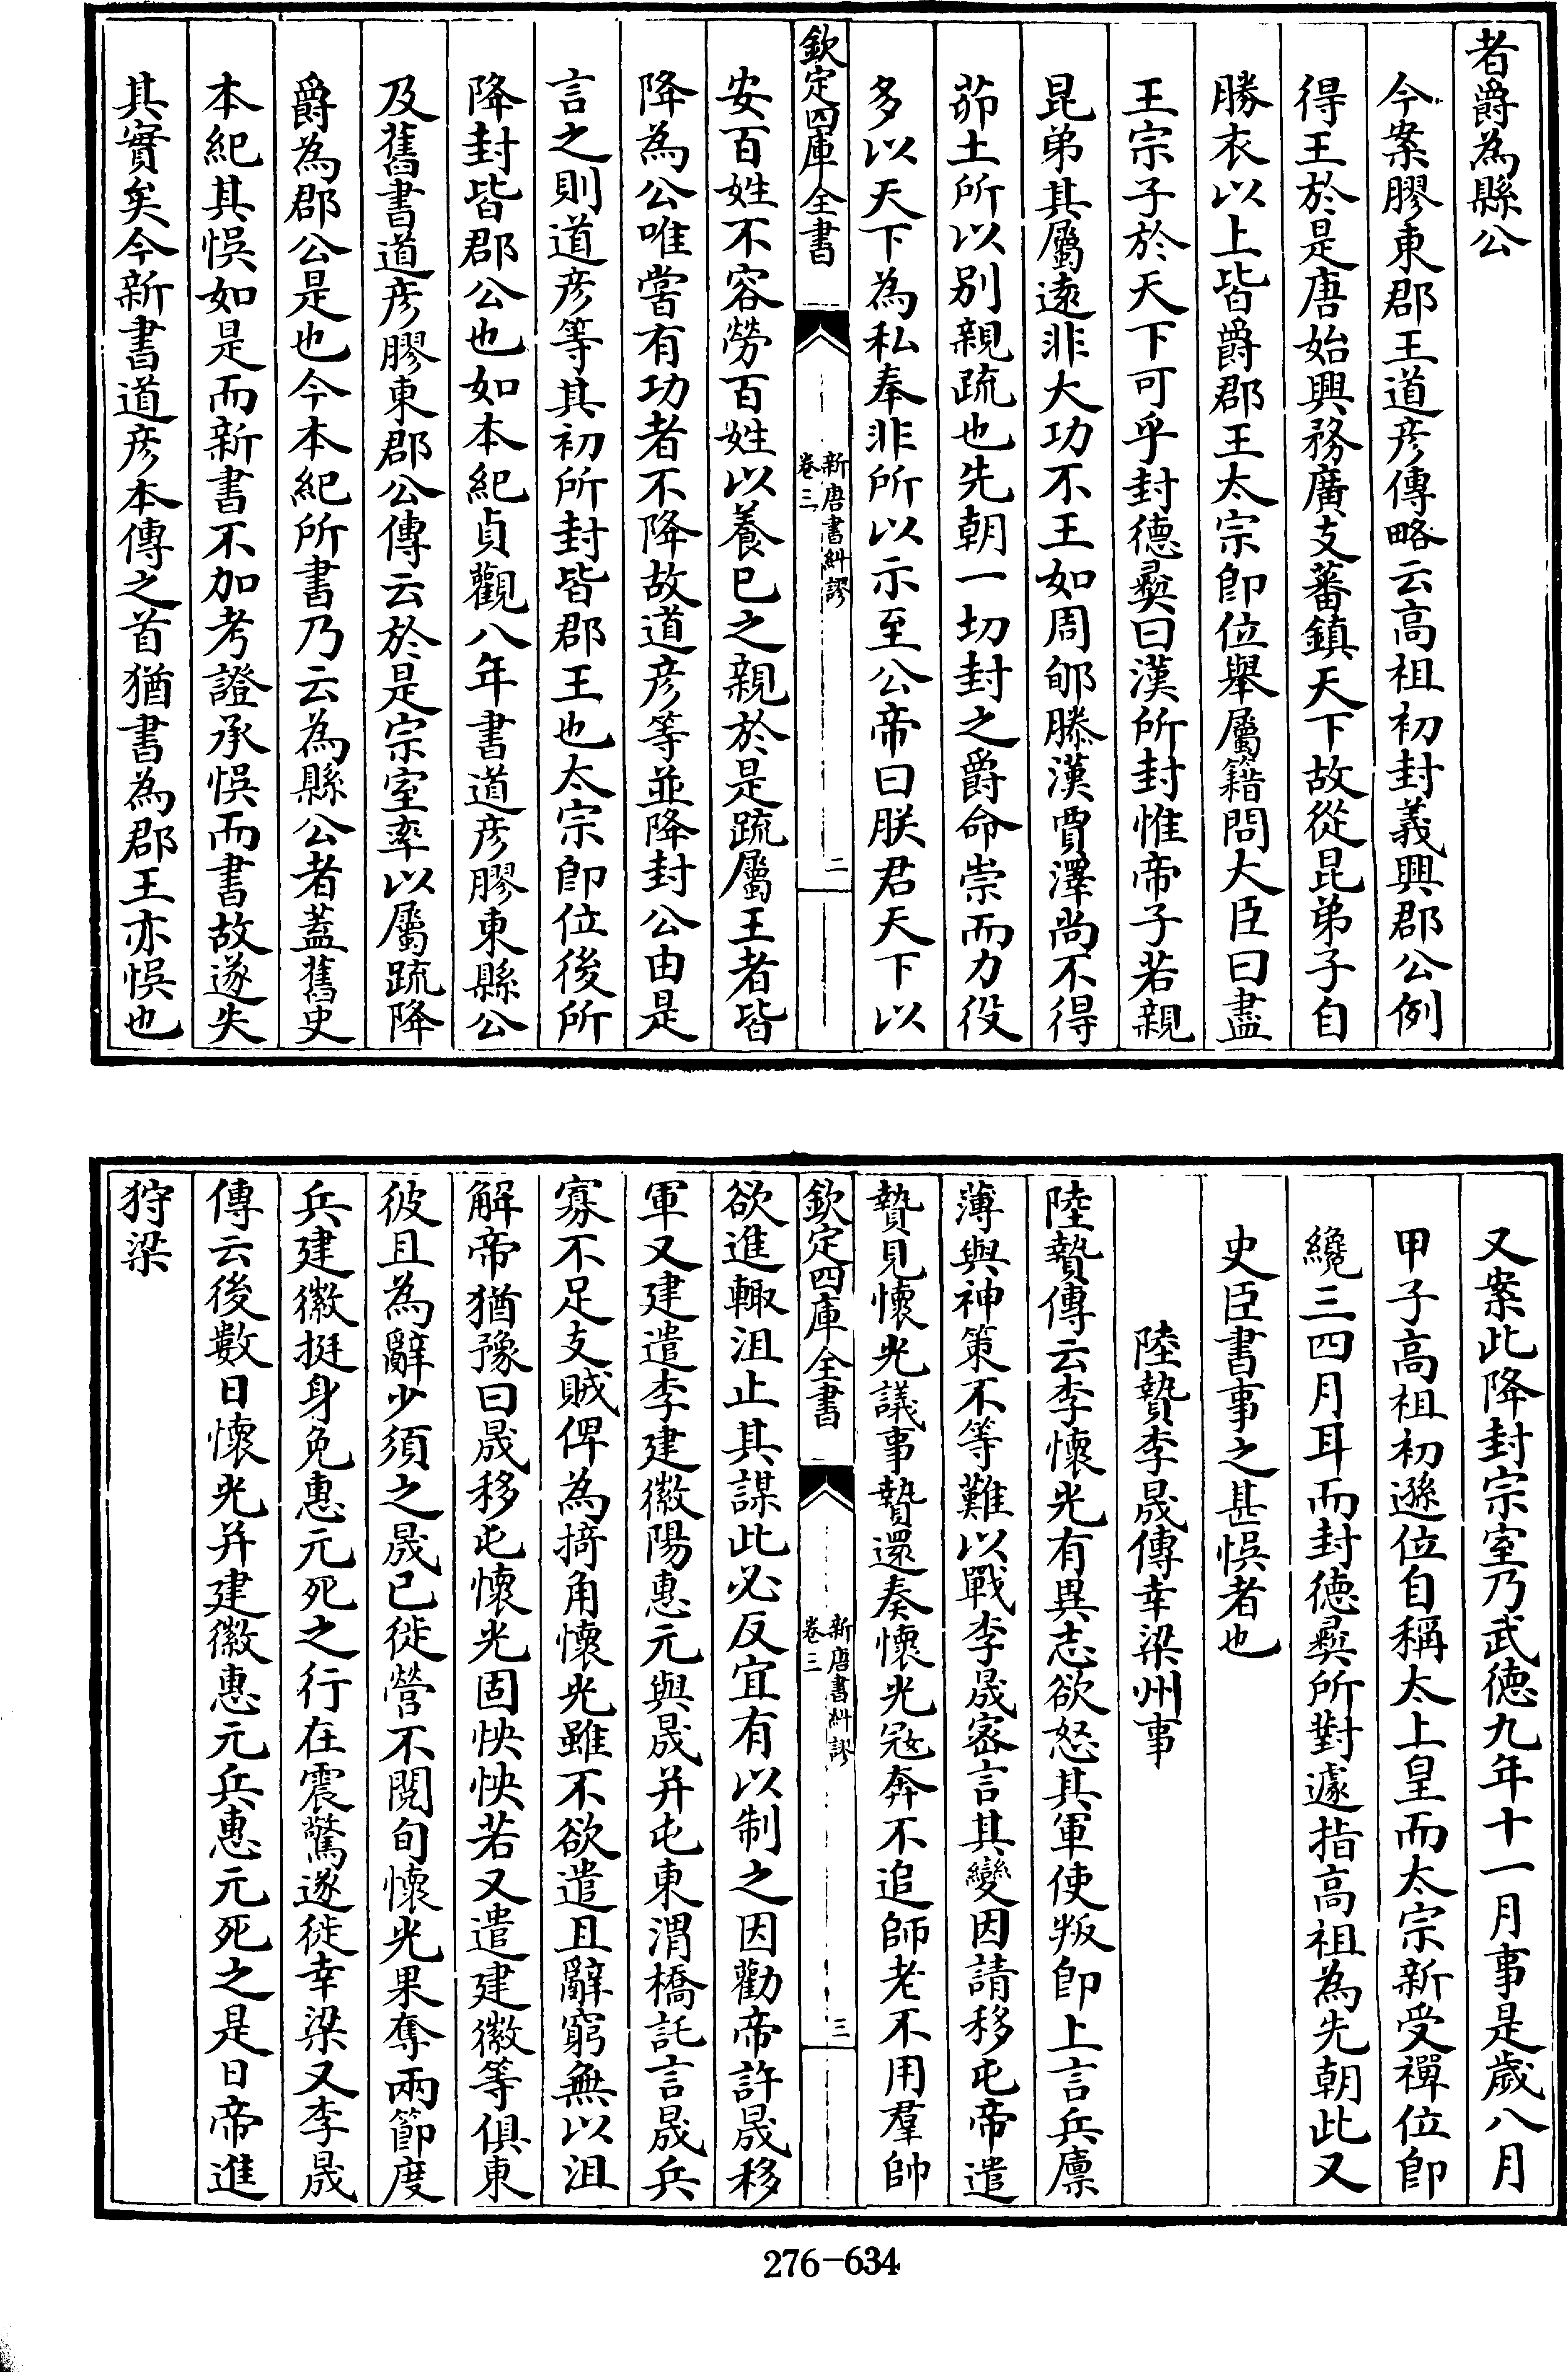 者爵為縣公
今案膠東郡王道彥傳略云高祖初封義興郡公例
得王於是唐始興務廣支蕃鎮天下故從昆弟子自
勝衣以上皆爵郡王太宗卽位舉屬籍問大臣曰盡
王宗子於天下可乎封德彞曰漢所封惟帝子若親
昆弟其屬遠非大功不王如周郇滕漢賈澤尚不得
茆土所以別親疏也先朝一切封之爵命崇而力役
多以天下為私奉非所以示至公帝曰朕君天下以
欽定四庫全書
新唐書糾謬
卷三
二
安百姓不容勞百姓以養已之親於是疏屬王者皆
降為公唯嘗有功者不降故道彥等並降封公由是
言之則道彥等其初所封皆郡王也太宗卽位後所
降封皆郡公也如本紀貞觀八年書道彥膠東縣公
及舊書道彥膠東郡公傳云於是宗室率以屬疏降
爵為郡公是也今本紀所書乃云為縣公者蓋舊史
本紀其悞如是而新書不加考證承悞而書故遂失
其實矣今新書道彥本傳之首猶書為郡王亦悞也
又案此降封宗室乃武德九年十一月事是歲八月
甲子高祖初遜位自稱太上皇而太宗新受禪位卽
纔三四月耳而封德彞所對遽指高祖為先朝此又
史臣書事之甚悞者也
陸贄李晟傳幸梁州事
陸贄傳云李懷光有異志欲怒其軍使叛卽上言兵廩
薄與神策不等難以戰李晟密言其變因請移屯帝遣
贄見懷光議事贄還奏懷光寇奔不追師老不用羣帥
欽定四庫全書
新唐書糾謬
卷三
三
欲進輙沮止其謀此必反宜有以制之因勸帝許晟移
軍又建遣李建徽陽惠元與晟并屯東渭橋託言晟兵
寡不足支賊俾為掎角懷光雖不欲遣且辭窮無以沮
解帝猶豫曰晟移屯懷光固怏怏若又遣建徽等俱東
彼且為辭少須之晟已徙營不閱旬懷光果奪兩節度
兵建徽挺身免惠元死之行在震驚遂徙幸梁又李晟
傳云後數日懷光并建徽惠元兵惠元死之是日帝進
狩梁
276-634